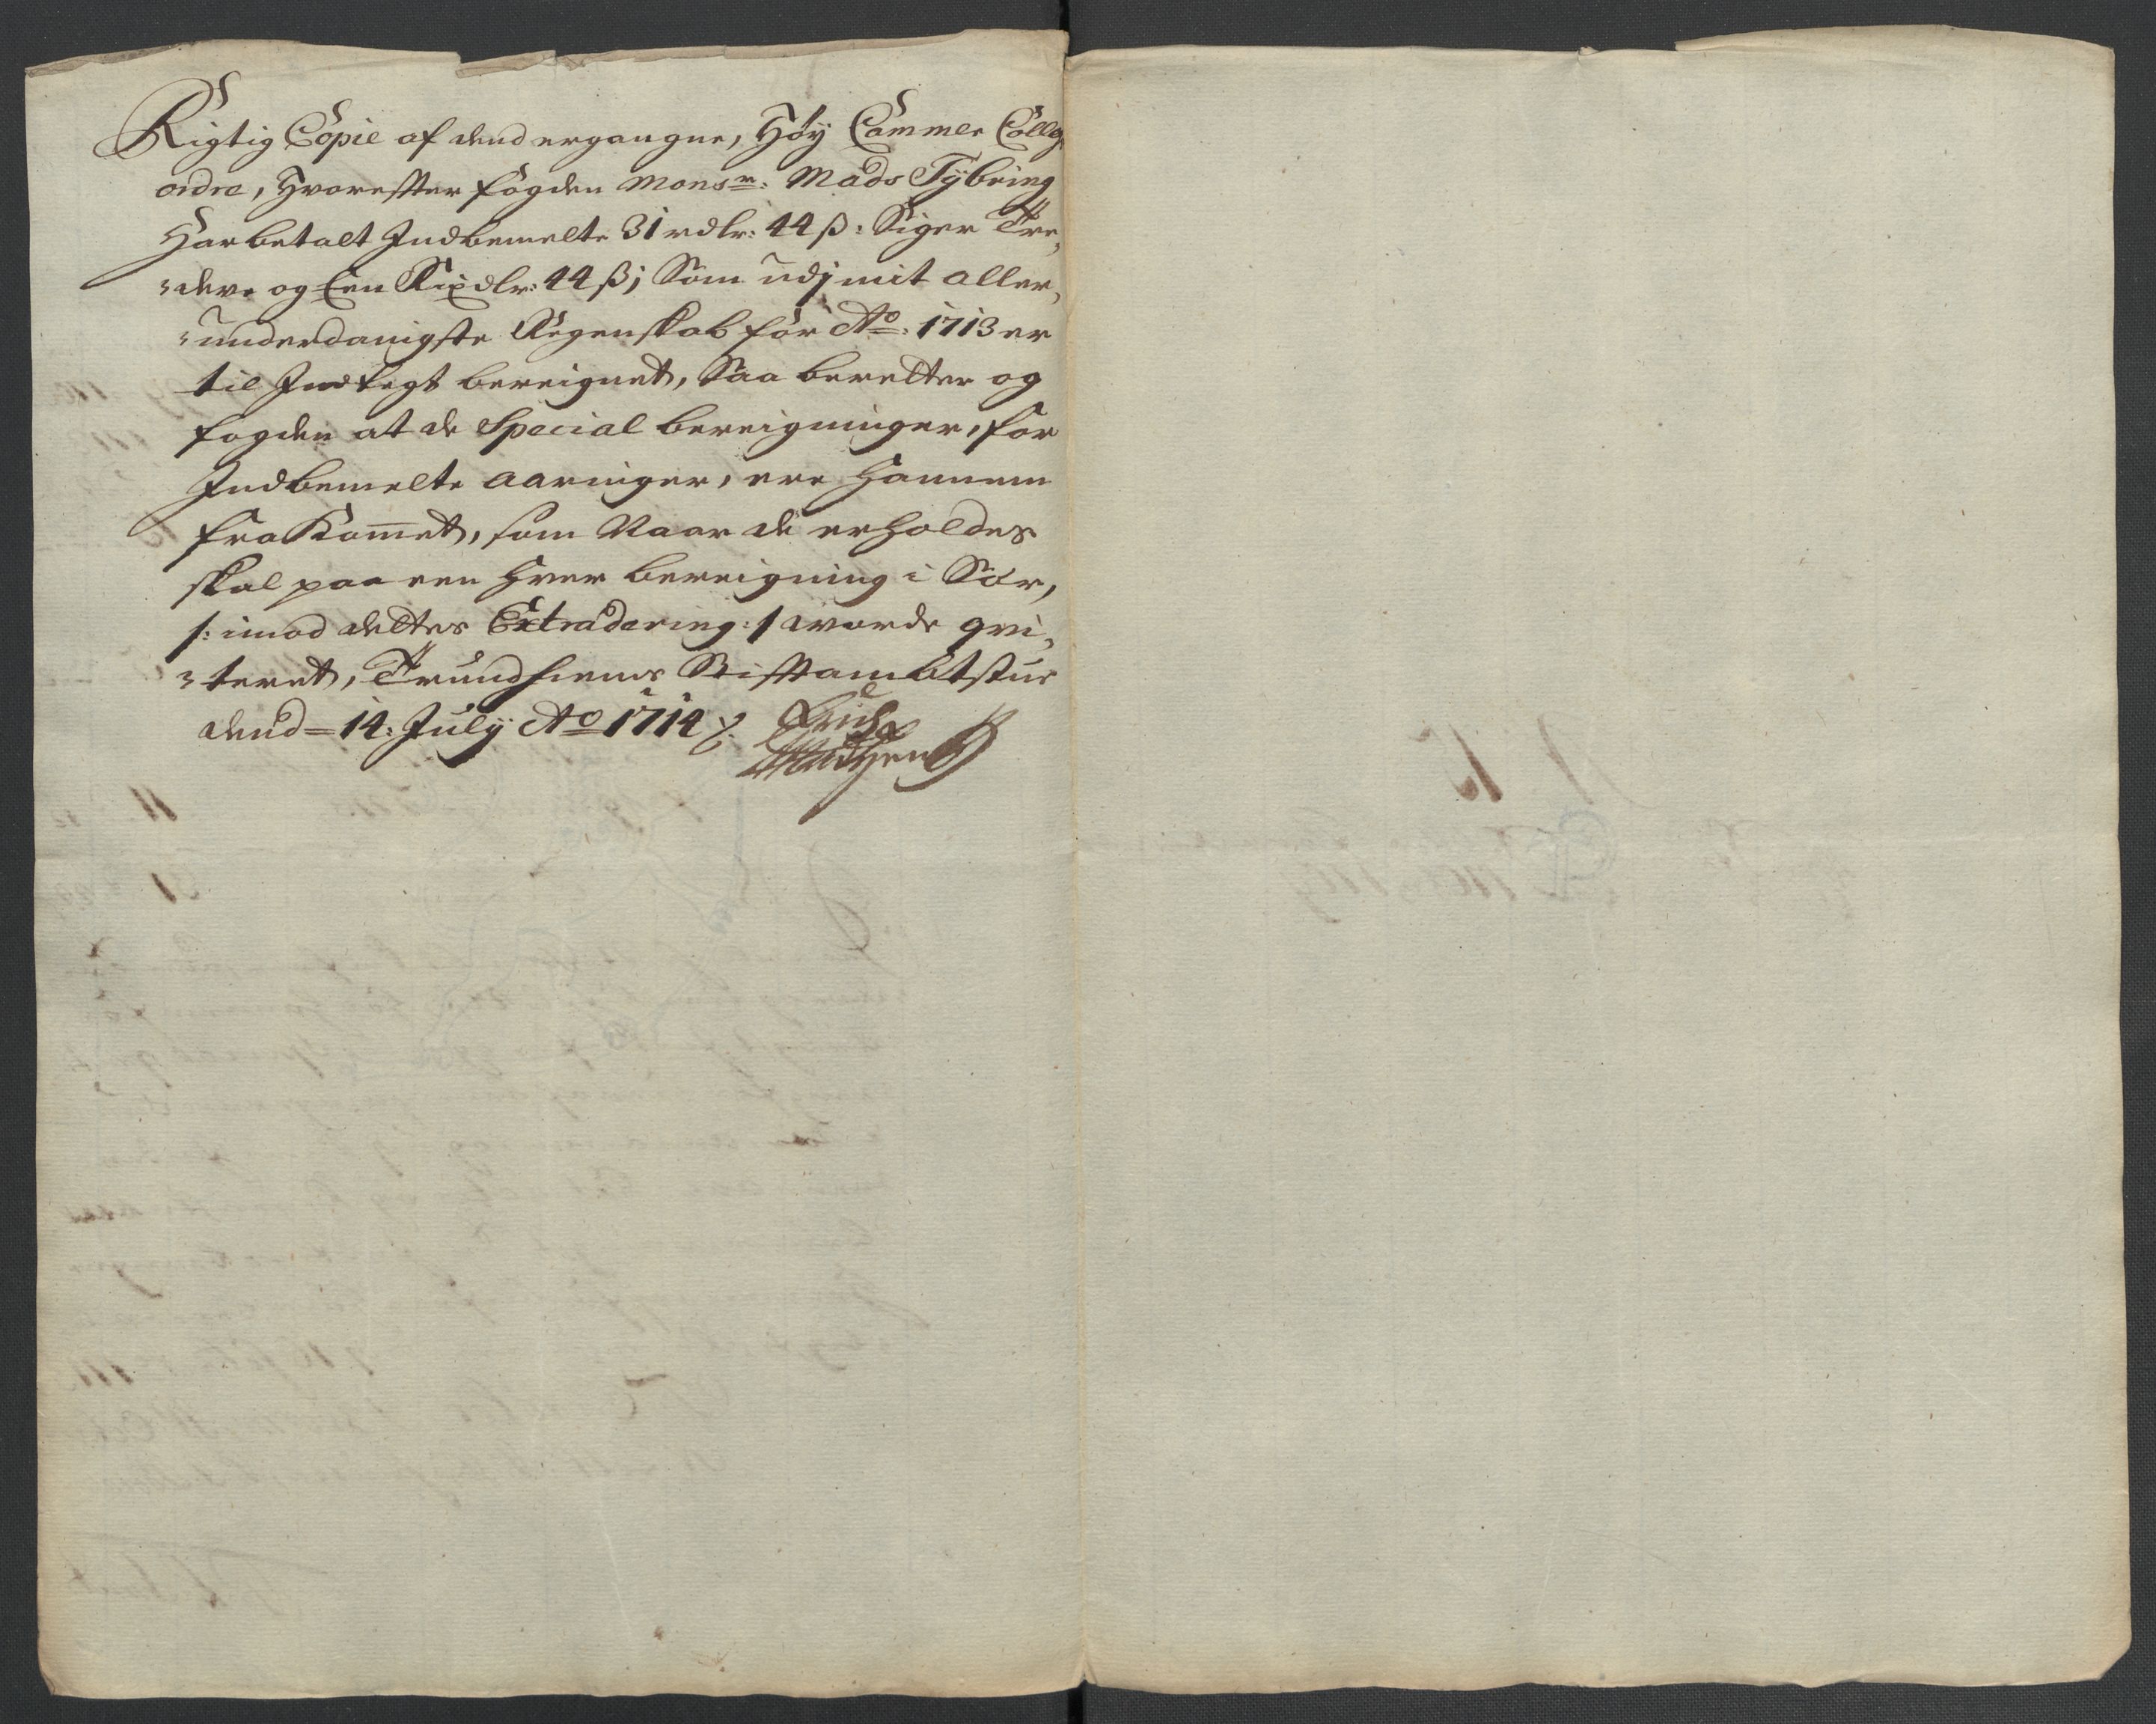 Rigtig Copie af dend ergangne, Høy Cammer Collg:
ordre, Hvorefter fogden Monsr: Mads Tybring
Har betalt Indbemelte 31 rdlr: 44 ß: Siger Tre,
"deve og Een Rixdlr: 44 ß; Som udj mit aller,
"underdanigste Regenskab for Ao: 1713 er
til Indtegt bereignet, Saa beretter og
fogden at de Special bereigninger, for
Indbemelte aaringer, ere Hannem
fra Komet, som Naar de erholdes
skal paa een Hver bereigning i Sær,
/: imod dettes Extradering :/ worde qvi,
"teret, Trundhiems Stiftambtstue
dend = 14: July Ao 1714 ./.
Erich